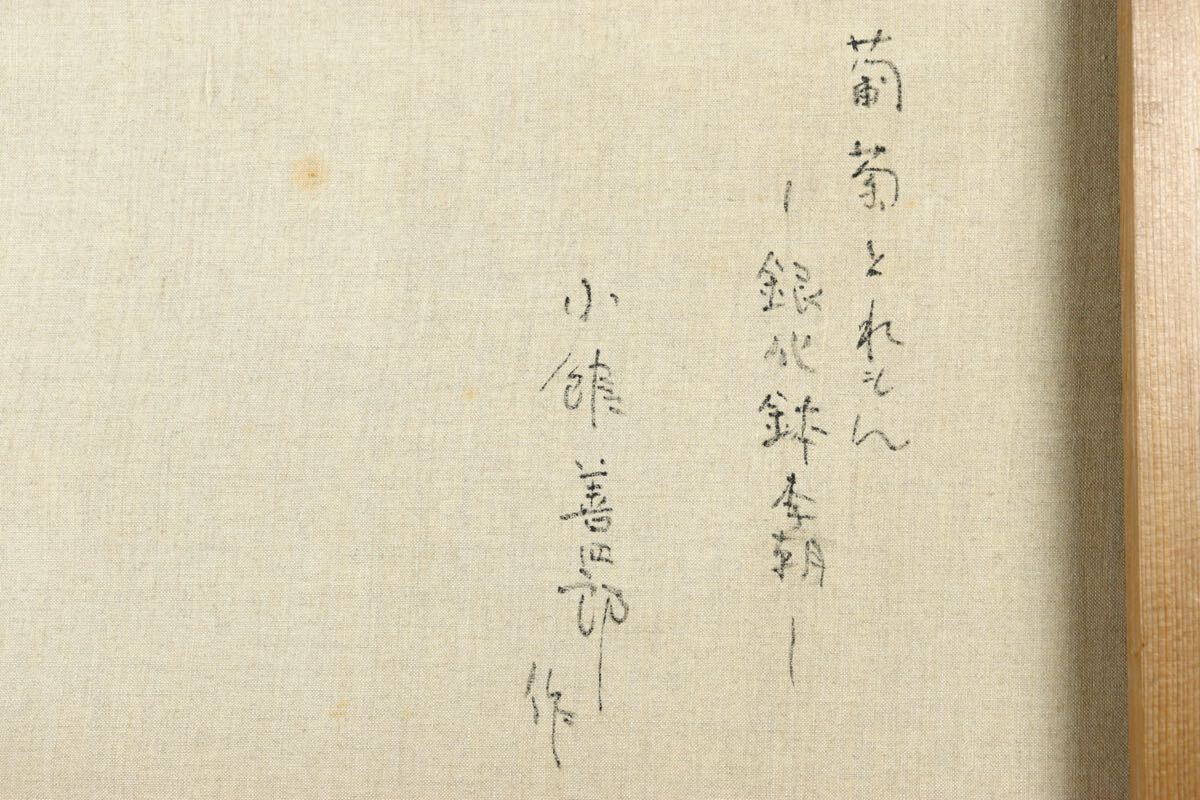 葡萄とれもん
―銀化鉢李朝―
小館善四郎
作